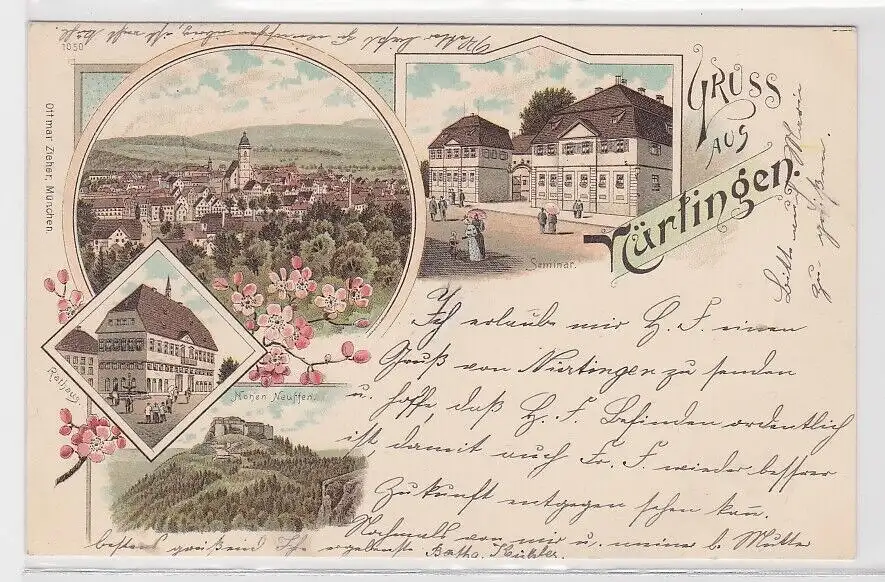 1050
Ottmar Zieher, München.
GRUSS
AUS
Nürtingen.
Seminar.
Rathaus.
Hohen Neuffen.
Ich erlaube mir H. F. einen
Gruß von Nürtingen zu senden
u. hoffe, daß H. F. Befinden ordentlich
ist, damit auch Fr. F. wieder bessrer
Zukunft entgegen sehen kann.
Nochmals von mir u. meiner l. Mutter
bestens grüßend Ihr ergebenste Bertha
Bitte auch Marie
zu grüßen.